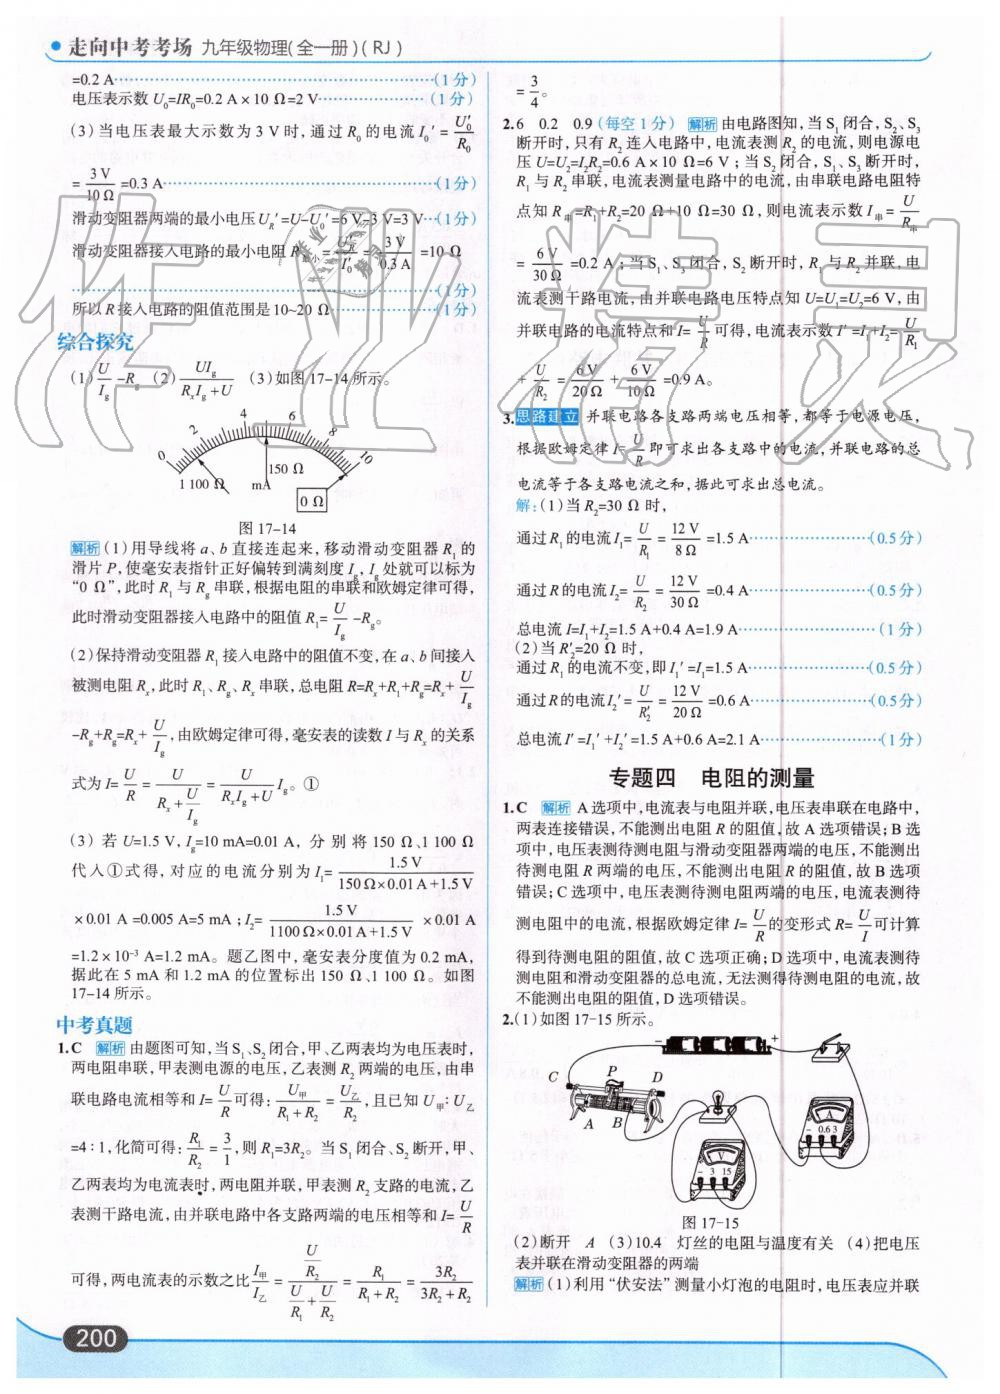 走向中考考场 九年级物理(全一册)(RJ)
=0.2 A……(1分)
电压表示数 U₀=IR₀=0.2 A×10 Ω=2 V……(1分)
(3)当电压表最大示数为 3 V 时,通过 R₀ 的电流 I₀′ = U₀′/R₀
= 3 V/10 Ω =0.3 A……(1分)
滑动变阻器两端的最小电压 U_R′=U-U₀′=6 V-3 V=3 V…(1分)
滑动变阻器接入电路的最小电阻 R最小 = U_R′/I₀′ = 3 V/0.3 A =10 Ω
……(1分)
所以 R 接入电路的阻值范围是 10~20 Ω……(1分)
综合探究
(1) U/I_g -R_g (2) UI_g/(RₓI_g+U) (3)如图 17-14 所示。
0 2 4 6 8 10
1 100 Ω 150 Ω mA 0 Ω
图 17-14
解析 (1)用导线将 a、b 直接连起来,移动滑动变阻器 R₁ 的
滑片 P,使毫安表指针正好偏转到满刻度 I_g,I_g 处就可以标为
“0 Ω”,此时 R₁ 与 R_g 串联,根据电阻的串联和欧姆定律可得,
此时滑动变阻器接入电路中的阻值 R₁= U/I_g -R_g。
(2)保持滑动变阻器 R₁ 接入电路中的阻值不变,在 a、b 间接入
被测电阻 Rₓ,此时 R₁、R_g、Rₓ 串联,总电阻 R=Rₓ+R₁+R_g=Rₓ+ U/I_g
-R_g+R_g=Rₓ+ U/I_g ,由欧姆定律可得,毫安表的读数 I 与 Rₓ 的关系
式为 I= U/R = U/(Rₓ+U/I_g) = U/(RₓI_g+U) I_g。①
(3) 若 U=1.5 V,I_g=10 mA=0.01 A, 分别将 150 Ω、1 100 Ω
代入①式得,对应的电流分别为 I₁= 1.5 V/(150 Ω×0.01 A+1.5 V)
×0.01 A =0.005 A=5 mA ;I₂= 1.5 V/(1100 Ω×0.01 A+1.5 V) ×0.01 A
=1.2×10⁻³ A=1.2 mA。题乙图中,毫安表分度值为 0.2 mA,
据此在 5 mA 和 1.2 mA 的位置标出 150 Ω、1 100 Ω。如图
17-14 所示。
中考真题
1.C 解析 由题图可知,当 S₁、S₂ 闭合,甲、乙两表均为电压表时,
两电阻串联,甲表测电源的电压,乙表测 R₂ 两端的电压,由串
联电路电流相等和 I= U/R 可得: U甲/(R₁+R₂) = U乙/R₂ ,且已知 U甲∶U乙
=4∶1,化简可得: R₁/R₂ = 3/1 ,则 R₁=3R₂。当 S₁ 闭合、S₂ 断开,甲、
乙两表均为电流表时,两电阻并联,甲表测 R₂ 支路的电流,乙
表测干路电流,由并联电路中各支路两端的电压相等和 I= U/R
可得,两电流表的示数之比 I甲/I乙 = (U/R₂)/(U/R₁+U/R₂) = R₁/(R₁+R₂) = 3R₂/(3R₂+R₂)
200
= 3/4 。
2.6 0.2 0.9(每空 1 分) 解析 由电路图知,当 S₁ 闭合,S₂、S₃
断开时,只有 R₂ 连入电路中,电流表测 R₂ 的电流,则电源电
压 U=U₂=I₂R₂=0.6 A×10 Ω=6 V ;当 S₂ 闭合,S₁、S₃ 断开时,
R₁ 与 R₂ 串联,电流表测量电路中的电流,由串联电路电阻特
点知 R串=R₁+R₂=20 Ω+10 Ω=30 Ω,则电流表示数 I串= U/R串
= 6 V/30 Ω =0.2 A ;当 S₁、S₃ 闭合,S₂ 断开时,R₁ 与 R₂ 并联,电
流表测干路电流,由并联电路电压特点知 U=U₁=U₂=6 V,由
并联电路的电流特点和 I= U/R 可得,电流表示数 I′ =I₁+I₂= U/R₁
+ U/R₂ = 6 V/20 Ω + 6 V/10 Ω =0.9 A。
3.思路建立 并联电路各支路两端电压相等,都等于电源电压,
根据欧姆定律 I= U/R 即可求出各支路中的电流,并联电路的总
电流等于各支路电流之和,据此可求出总电流。
解:(1)当 R₂=30 Ω 时,
通过 R₁ 的电流 I₁= U/R₁ = 12 V/8 Ω =1.5 A……(0.5分)
通过 R 的电流 I₂= U/R₂ = 12 V/30 Ω =0.4 A……(0.5分)
总电流 I=I₁+I₂=1.5 A+0.4 A=1.9 A……(1分)
(2)当 R₂′=20 Ω 时,
通过 R₁ 的电流不变,即 I₁′ =I₁=1.5 A……(0.5分)
通过 R 的电流 I₂′ = U/R₂′ = 12 V/20 Ω =0.6 A……(0.5分)
总电流 I′ =I₁′ +I₂′ =1.5 A+0.6 A=2.1 A……(1分)
专题四 电阻的测量
1.C 解析 A 选项中,电流表与电阻并联,电压表串联在电路中,
两表连接错误,不能测出电阻 R 的阻值,故 A 选项错误;B 选
项中,电压表测待测电阻与滑动变阻器两端的电压,不能测出
待测电阻 R 两端的电压,不能测出电阻 R 的阻值,故 B 选项
错误;C 选项中,电压表测待测电阻两端的电压,电流表测待
测电阻中的电流,根据欧姆定律 I= U/R 的变形式 R= U/I 可计算
得到待测电阻的阻值,故 C 选项正确;D 选项中,电流表测待
测电阻和滑动变阻器的总电流,无法测得待测电阻的电流,故
不能测出电阻的阻值,D 选项错误。
2.(1)如图 17-15 所示。
- +
C P D
A B
A - 0.6 3
V - 3 15
图 17-15
(2)断开 A (3)10.4 灯丝的电阻与温度有关 (4)把电压
表并联在滑动变阻器的两端
解析 (1)利用“伏安法”测量小灯泡的电阻时,电压表应并联
作业精灵